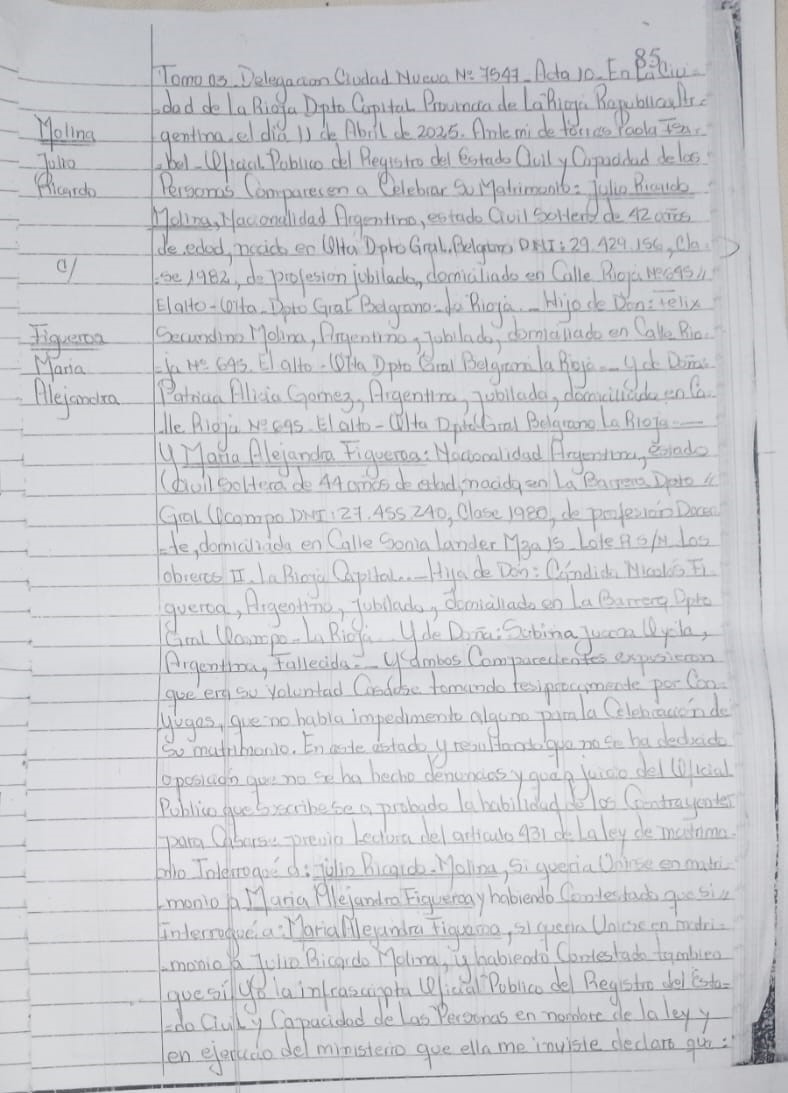 85
Tomo 03 Delegacion Ciudad Nueva Nº 7547 Acta 10. En La Ciu-
dad de La Rioja Dpto Capital Provincia de La Rioja Republica Ar-
gentina, el dia 11 de Abril de 2025. Ante mi de Paola Isa-
bel - Oficial Publico del Registro del Estado Civil y Capacidad de las
Personas Comparecen a Celebrar Su Matrimonio: Julio Ricardo
Molina, Nacionalidad Argentino, estado Civil Soltero de 42 años
de edad, nacido en Olta Dpto Gral. Belgrano DNI: 29.429.156, Cla-
se 1982, de profesion jubilado, domiciliado en Calle Rioja Nº 695 //
El alto - Olta - Dpto Gral Belgrano - La Rioja. - Hijo de Don: Felix
Secundino Molina, Argentino, Jubilado, domiciliado en Calle Rio-
ja Nº 695. El alto - Olta Dpto Gral Belgrano La Rioja - y de Doña:
Patricia Alicia Gomez, Argentina, Jubilada, domiciliada en Ca-
lle Rioja Nº 695. El alto - Olta Dpto Gral Belgrano La Rioja -
y Maria Alejandra Figueroa: Nacionalidad Argentina, estado
Civil Soltera de 44 años de edad, nacida en La Barrera Dpto //
Gral Ocampo DNI: 27.455.240, Clase 1980, de profesion Docen-
te, domiciliada en Calle Sonia lander Mza 15 Lote A S/N Los
obreros II. La Rioja Capital. - Hija de Don: Cándido Nicolás Fi-
gueroa, Argentino, Jubilado, domiciliado en La Barrera Dpto
Gral Ocampo - La Rioja. y de Doña: Sabina Oyola,
Argentina, Fallecida. - y ambos Comparecientes expusieron
que era su voluntad Casarse tomando resiprocamente por Con-
yugas, que no habia impedimento alguno para la Celebración de
So matrimonio. En este estado y resultando que no se ha deducido
oposicion que no se ha hecho denuncias y que a juicio del Oficial
Publico que Suscribe se a probado la habilidad de los Contrayentes
para Casarse previa Lectura del articulo 431 de La ley de matrimo-
nio Interrogue a: Julio Ricardo Molina, Si queria Unirse en matri-
monio a Maria Alejandra Figueroa y habiendo Contestado que si //
interrogue a: Maria Alejandra Figueroa, si queria Unirse en matri-
monio a Julio Ricardo Molina, y habiendo Contestado tambien
que si yo la infrascripta Oficial Publico del Registro del Esta-
do Civil y Capacidad de Las Personas en nombre de la ley y
en ejercicio del ministerio que ella me inviste declaro que:
Molina
Julio
Ricardo
c/
Figueroa
Maria
Alejandra